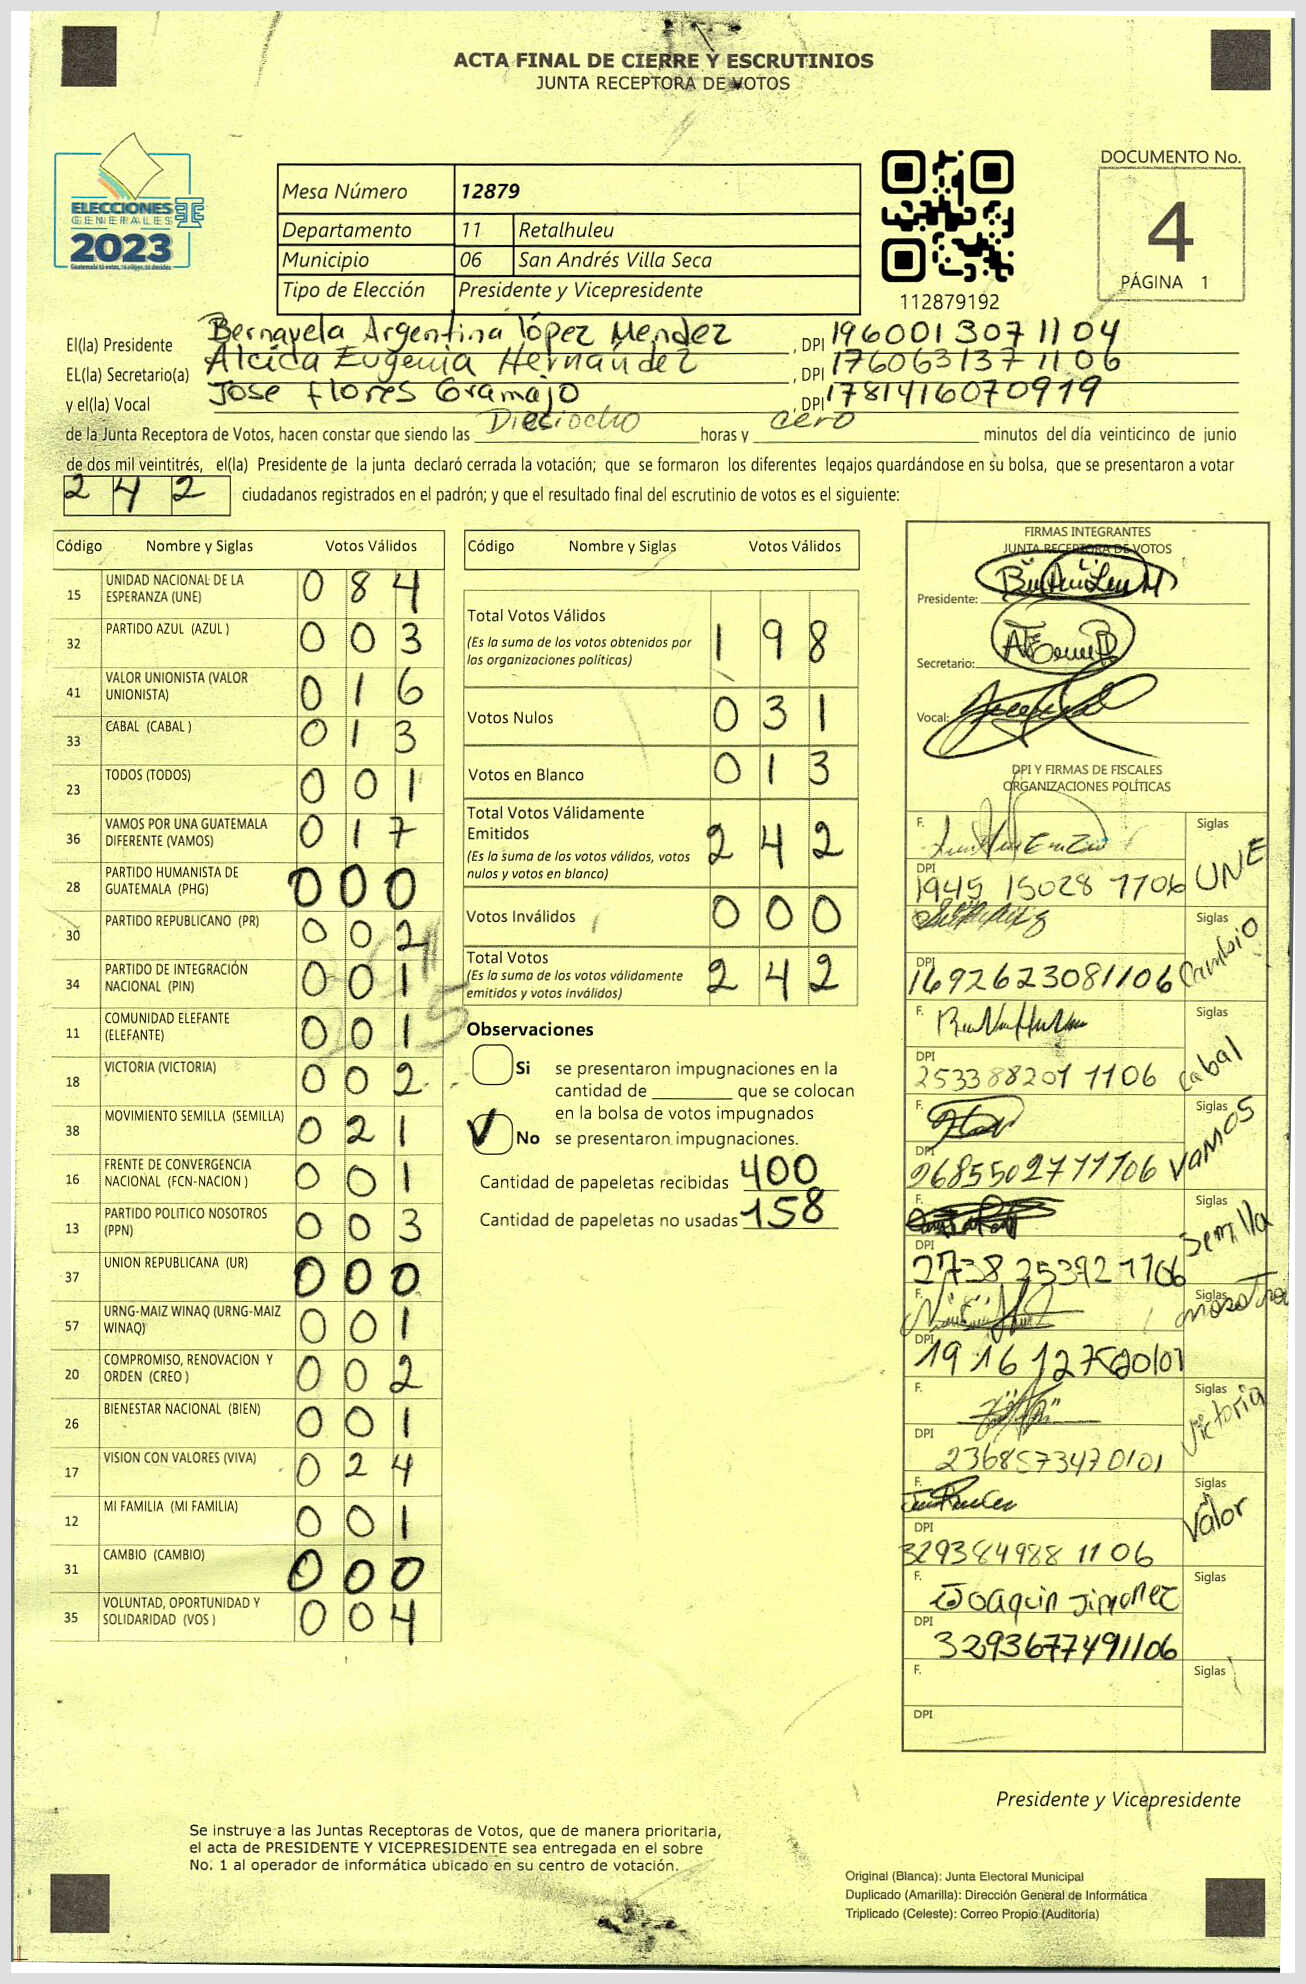 ACTA FINAL DE CIERRE Y ESCRUTINIOS
JUNTA RECEPTORA DE VOTOS
ELECCIONES
GENERALES
2023
Mesa Número 12879
Departamento 11 Retalhuleu
Municipio 06 San Andrés Villa Seca
Tipo de Elección Presidente y Vicepresidente
112879192
DOCUMENTO No.
4
PÁGINA 1
El(la) Presidente Bernavela Argentina López Mendez, DPI 1960013071104
EL(la) Secretario(a) Alcida Eugenia Hernández, DPI 1760631371106
y el(la) Vocal Jose Flores Gramajo, DPI 1781416070919
de la Junta Receptora de Votos, hacen constar que siendo las Dieciocho horas y cero minutos del día veinticinco de junio
de dos mil veintitrés, el(la) Presidente de la junta declaró cerrada la votación; que se formaron los diferentes legajos guardándose en su bolsa, que se presentaron a votar
242 ciudadanos registrados en el padrón; y que el resultado final del escrutinio de votos es el siguiente:
Código Nombre y Siglas Votos Válidos
15 UNIDAD NACIONAL DE LA ESPERANZA (UNE) 084
32 PARTIDO AZUL (AZUL ) 003
41 VALOR UNIONISTA (VALOR UNIONISTA) 016
33 CABAL (CABAL ) 013
23 TODOS (TODOS) 001
36 VAMOS POR UNA GUATEMALA DIFERENTE (VAMOS) 017
28 PARTIDO HUMANISTA DE GUATEMALA (PHG) 000
30 PARTIDO REPUBLICANO (PR) 002
34 PARTIDO DE INTEGRACIÓN NACIONAL (PIN) 001
11 COMUNIDAD ELEFANTE (ELEFANTE) 001
18 VICTORIA (VICTORIA) 002
38 MOVIMIENTO SEMILLA (SEMILLA) 021
16 FRENTE DE CONVERGENCIA NACIONAL (FCN-NACION ) 001
13 PARTIDO POLITICO NOSOTROS (PPN) 003
37 UNION REPUBLICANA (UR) 000
57 URNG-MAIZ WINAQ (URNG-MAIZ WINAQ) 001
20 COMPROMISO, RENOVACION Y ORDEN (CREO ) 002
26 BIENESTAR NACIONAL (BIEN) 001
17 VISION CON VALORES (VIVA) 024
12 MI FAMILIA (MI FAMILIA) 001
31 CAMBIO (CAMBIO) 000
35 VOLUNTAD, OPORTUNIDAD Y SOLIDARIDAD (VOS ) 004
Código Nombre y Siglas Votos Válidos
Total Votos Válidos 198
(Es la suma de los votos obtenidos por
las organizaciones políticas)
Votos Nulos 031
Votos en Blanco 013
Total Votos Válidamente
Emitidos 242
(Es la suma de los votos válidos, votos
nulos y votos en blanco)
Votos Inválidos 000
Total Votos 242
(Es la suma de los votos válidamente
emitidos y votos inválidos)
Observaciones
Si se presentaron impugnaciones en la
cantidad de ________ que se colocan
en la bolsa de votos impugnados
No se presentaron impugnaciones.
Cantidad de papeletas recibidas 400
Cantidad de papeletas no usadas 158
FIRMAS INTEGRANTES
JUNTA RECEPTORA DE VOTOS
Presidente:
Secretario:
Vocal:
DPI Y FIRMAS DE FISCALES
ORGANIZACIONES POLÍTICAS
F. Siglas UNE
DPI 1945 15028 1106
Siglas Cambio
DPI 1692623081106
F. Siglas Cabal
DPI 2533882011106
F. Siglas VAMOS
DPI 2685502711106
F. Siglas Semilla
DPI 2738 253921106
F. Siglas
DPI
F. Siglas Victoria
DPI 2368573470101
F. Siglas Valor
DPI 3293849881106
F. Joaquin Jimonez Siglas
DPI 3293677491106
F. Siglas
DPI
Presidente y Vicepresidente
Se instruye a las Juntas Receptoras de Votos, que de manera prioritaria,
el acta de PRESIDENTE Y VICEPRESIDENTE sea entregada en el sobre
No. 1 al operador de informática ubicado en su centro de votación.
Original (Blanca): Junta Electoral Municipal
Duplicado (Amarilla): Dirección General de Informática
Triplicado (Celeste): Correo Propio (Auditoría)